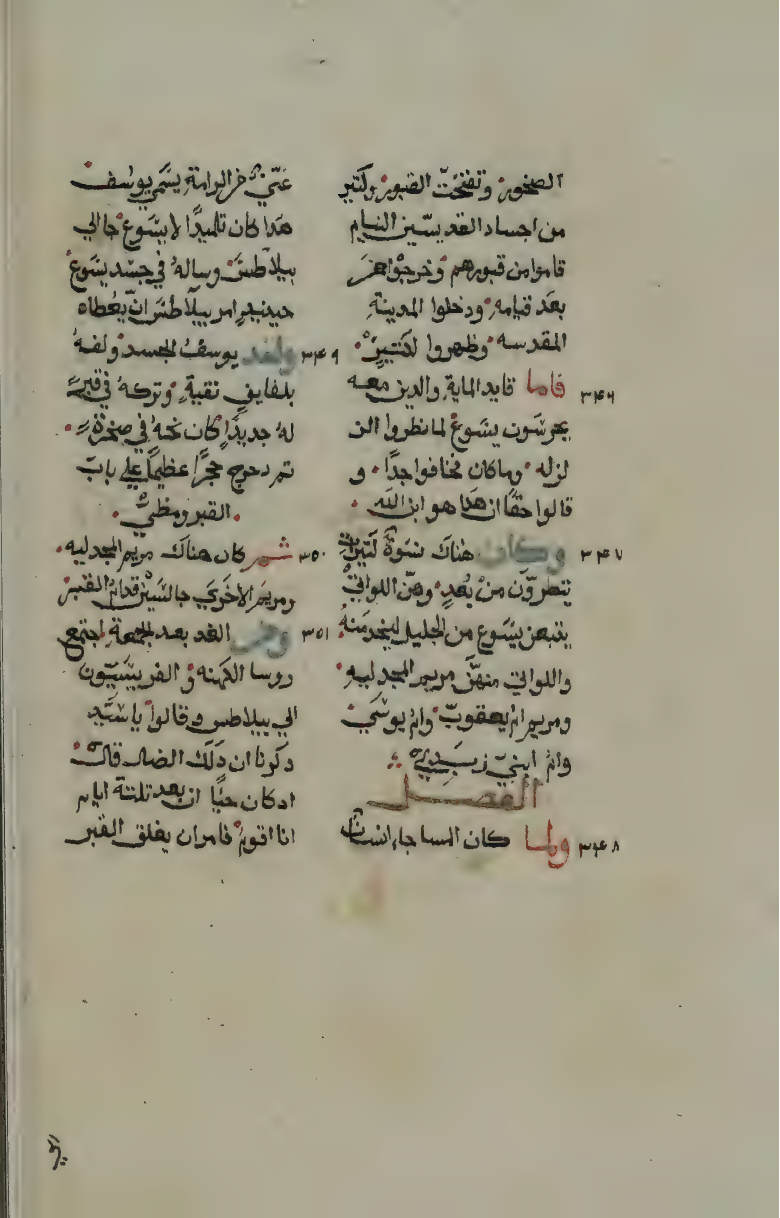 الصخور وتفتحت القبور وكتير
من اجساد القديسين النيام
قاموا من قبورهم وخرجوا
بعد قيامه ودخلوا المدينة
المقدسه وظهروا لكتيرين
٣٤٦ فاما قايد الماية والدين معه
يحرسون يسوع لما نظروا الز
لزله وما كان فخافوا جدا و
قالوا حقا ان هدا هو ابن الله
٣٤٧ وكان هناك نسوة كتيرة
ينظرون من بعد وهن اللواتي
يتبعن يسوع من الجليل ليخدمنه
واللواتي منهن مريم المجدليه
ومريم ام يعقوب وام يوسي
وام ابني زبدي
الفصل
٣٤٨ ولما كان المسا جا انسان
غني من الرامة يسمي يوسف
هدا كان تلميدا لايسوع جا الي
بيلاطس وساله في جسد يسوع
حينيد امر بيلاطس ان يعطاه
٣٤٩ واخد يوسف الجسد ولفه
بلفايف نقية وتركه في قبر
له جديدا كان نحته في صخرة
تم دحرج حجرا عظيما علي باب
القبر ومضي
٣٥٠ تم كان هناك مريم المجدليه
ومريم الاخري جالستين قدام القبر
٣٥١ وفي الغد بعد الجمعة اجتمع
روسا الكهنه و الفريسيون
الي بيلاطس وقالوا يا سيد
دكرنا ان دلك الضال قال
ادكان حيا ان بعد تلتة ايام
انا اقوم فامر ان يغلق القبر